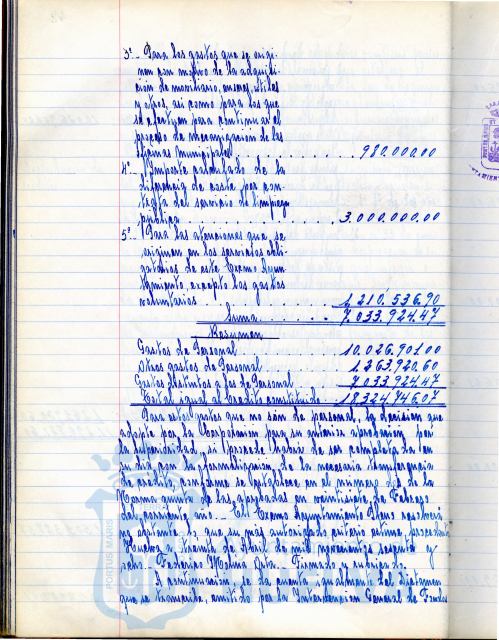 3º.- Para los gastos que se origi-
nen con motivo de la adquisi-
ción de mobiliario, enseres, útiles
y otros, así como para los que
se efectúen para continuar el
proceso de mecanización de las
oficinas municipales . . . . . . . . . . . 980.000.00
4º.- Importe calculado de la
diferencia de coste por con-
trata del servicio de limpieza
pública . . . . . . . . . . . . 3.000.000.00
5º.- Para las atenciones que se
originen en los servicios obli-
gatorios de este Excmo Ayun-
tamiento, excepto los gastos
voluntarios . . . . . . . . . . 1.210.536.90
Suma . . . . . . . . 7.033.924.47
Resumen
Gastos de Personal . . . . . . . . . 10.026.901.00
Otros gastos de Personal . . . . . . 1.263.920.60
Gastos distintos a los de Personal . . . 7.033.924.47
Total igual al Credito constituido . . 18.324.746.07
Para estos gastos que no son de personal, la decisión que
adopte por la Corporación para su autorizar aprobación por
la Superioridad, si procede habrá de ser completada en
su día con la formalización de la necesaria transferencia
de credito conforme se establece en el número de la
Norma quinta de las aprobadas en veintisiete de Febrero
del corriente año.- El Excmo Ayuntamiento Pleno resolverá
no obstante, lo que su más autorizado criterio estime, procedente
Huelva, a treinta de Abril de mil novecientos sesenta y
seis.- Federico Molina Orta. Firmado y rubricado.
A continuación se da cuenta igualmente del Dictamen
que se transcribe, emitido por la Intervención General de Fondos
PORTUS MARIS